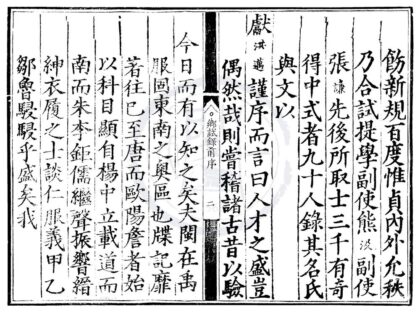 飭新規百度惟貞內外允秩
乃合試提學副使熊汲副使
張謙先後所取士三千有奇
得中式者九十人錄其名氏
與文以
獻洪邁謹序而言曰人才之盛豈
偶然哉則嘗稽諸古昔以驗
試錄前序 二
今日而有以知之矣夫閩在禹
服固東南之奧區也牒記靡
著往已至唐而歐陽詹者始
以科目顯自楊中立載道而
南而朱李鉅儒繼聲振響縉
紳衣履之士談仁服義甲乙
鄒魯駸駸乎盛矣我